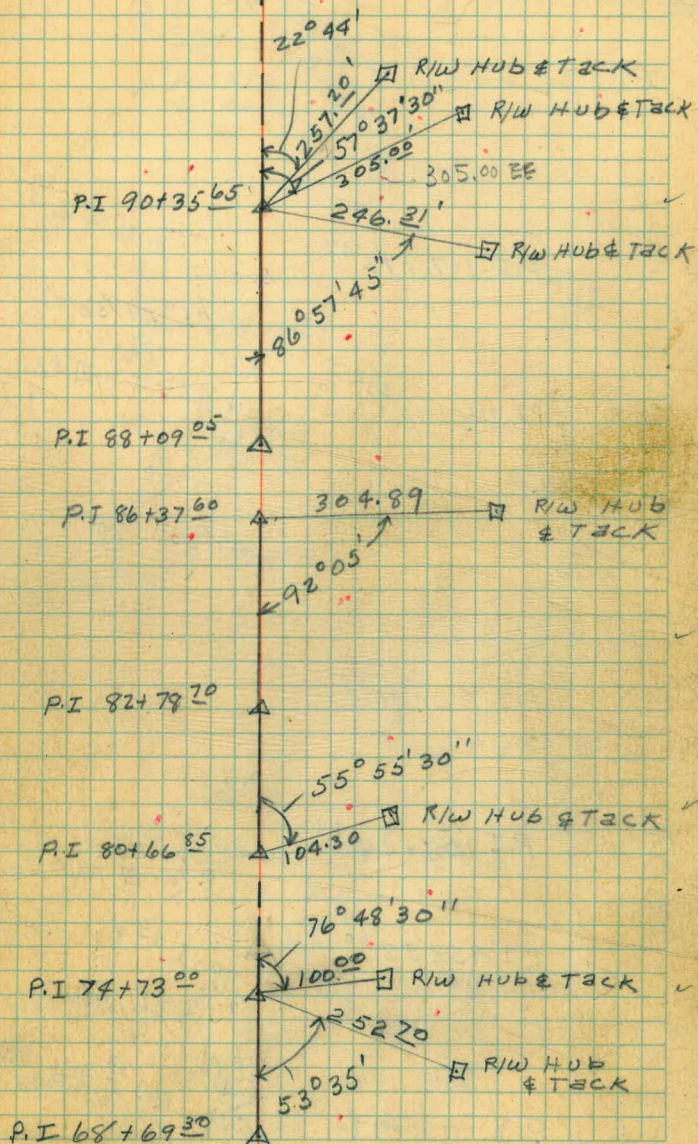 22° 44'
R/W Hub & Tack
257.20'
57° 37' 30"
R/W Hub & Tack
305.00'
305.00 EE
P.I 90+35 65
246.31'
R/W Hub & Tack
86° 57' 45"
P.I 88+09 05
P.I 86+37 60
304.89
R/W Hub
& Tack
92° 05'
P.I 82+78 70
55° 55' 30"
R/W Hub & Tack
P.I 80+66 85
104.30
76° 48' 30"
100.00
R/W Hub & Tack
P.I 74+73 00
252 70
R/W Hub
& Tack
53° 35'
P.I 68+69 30